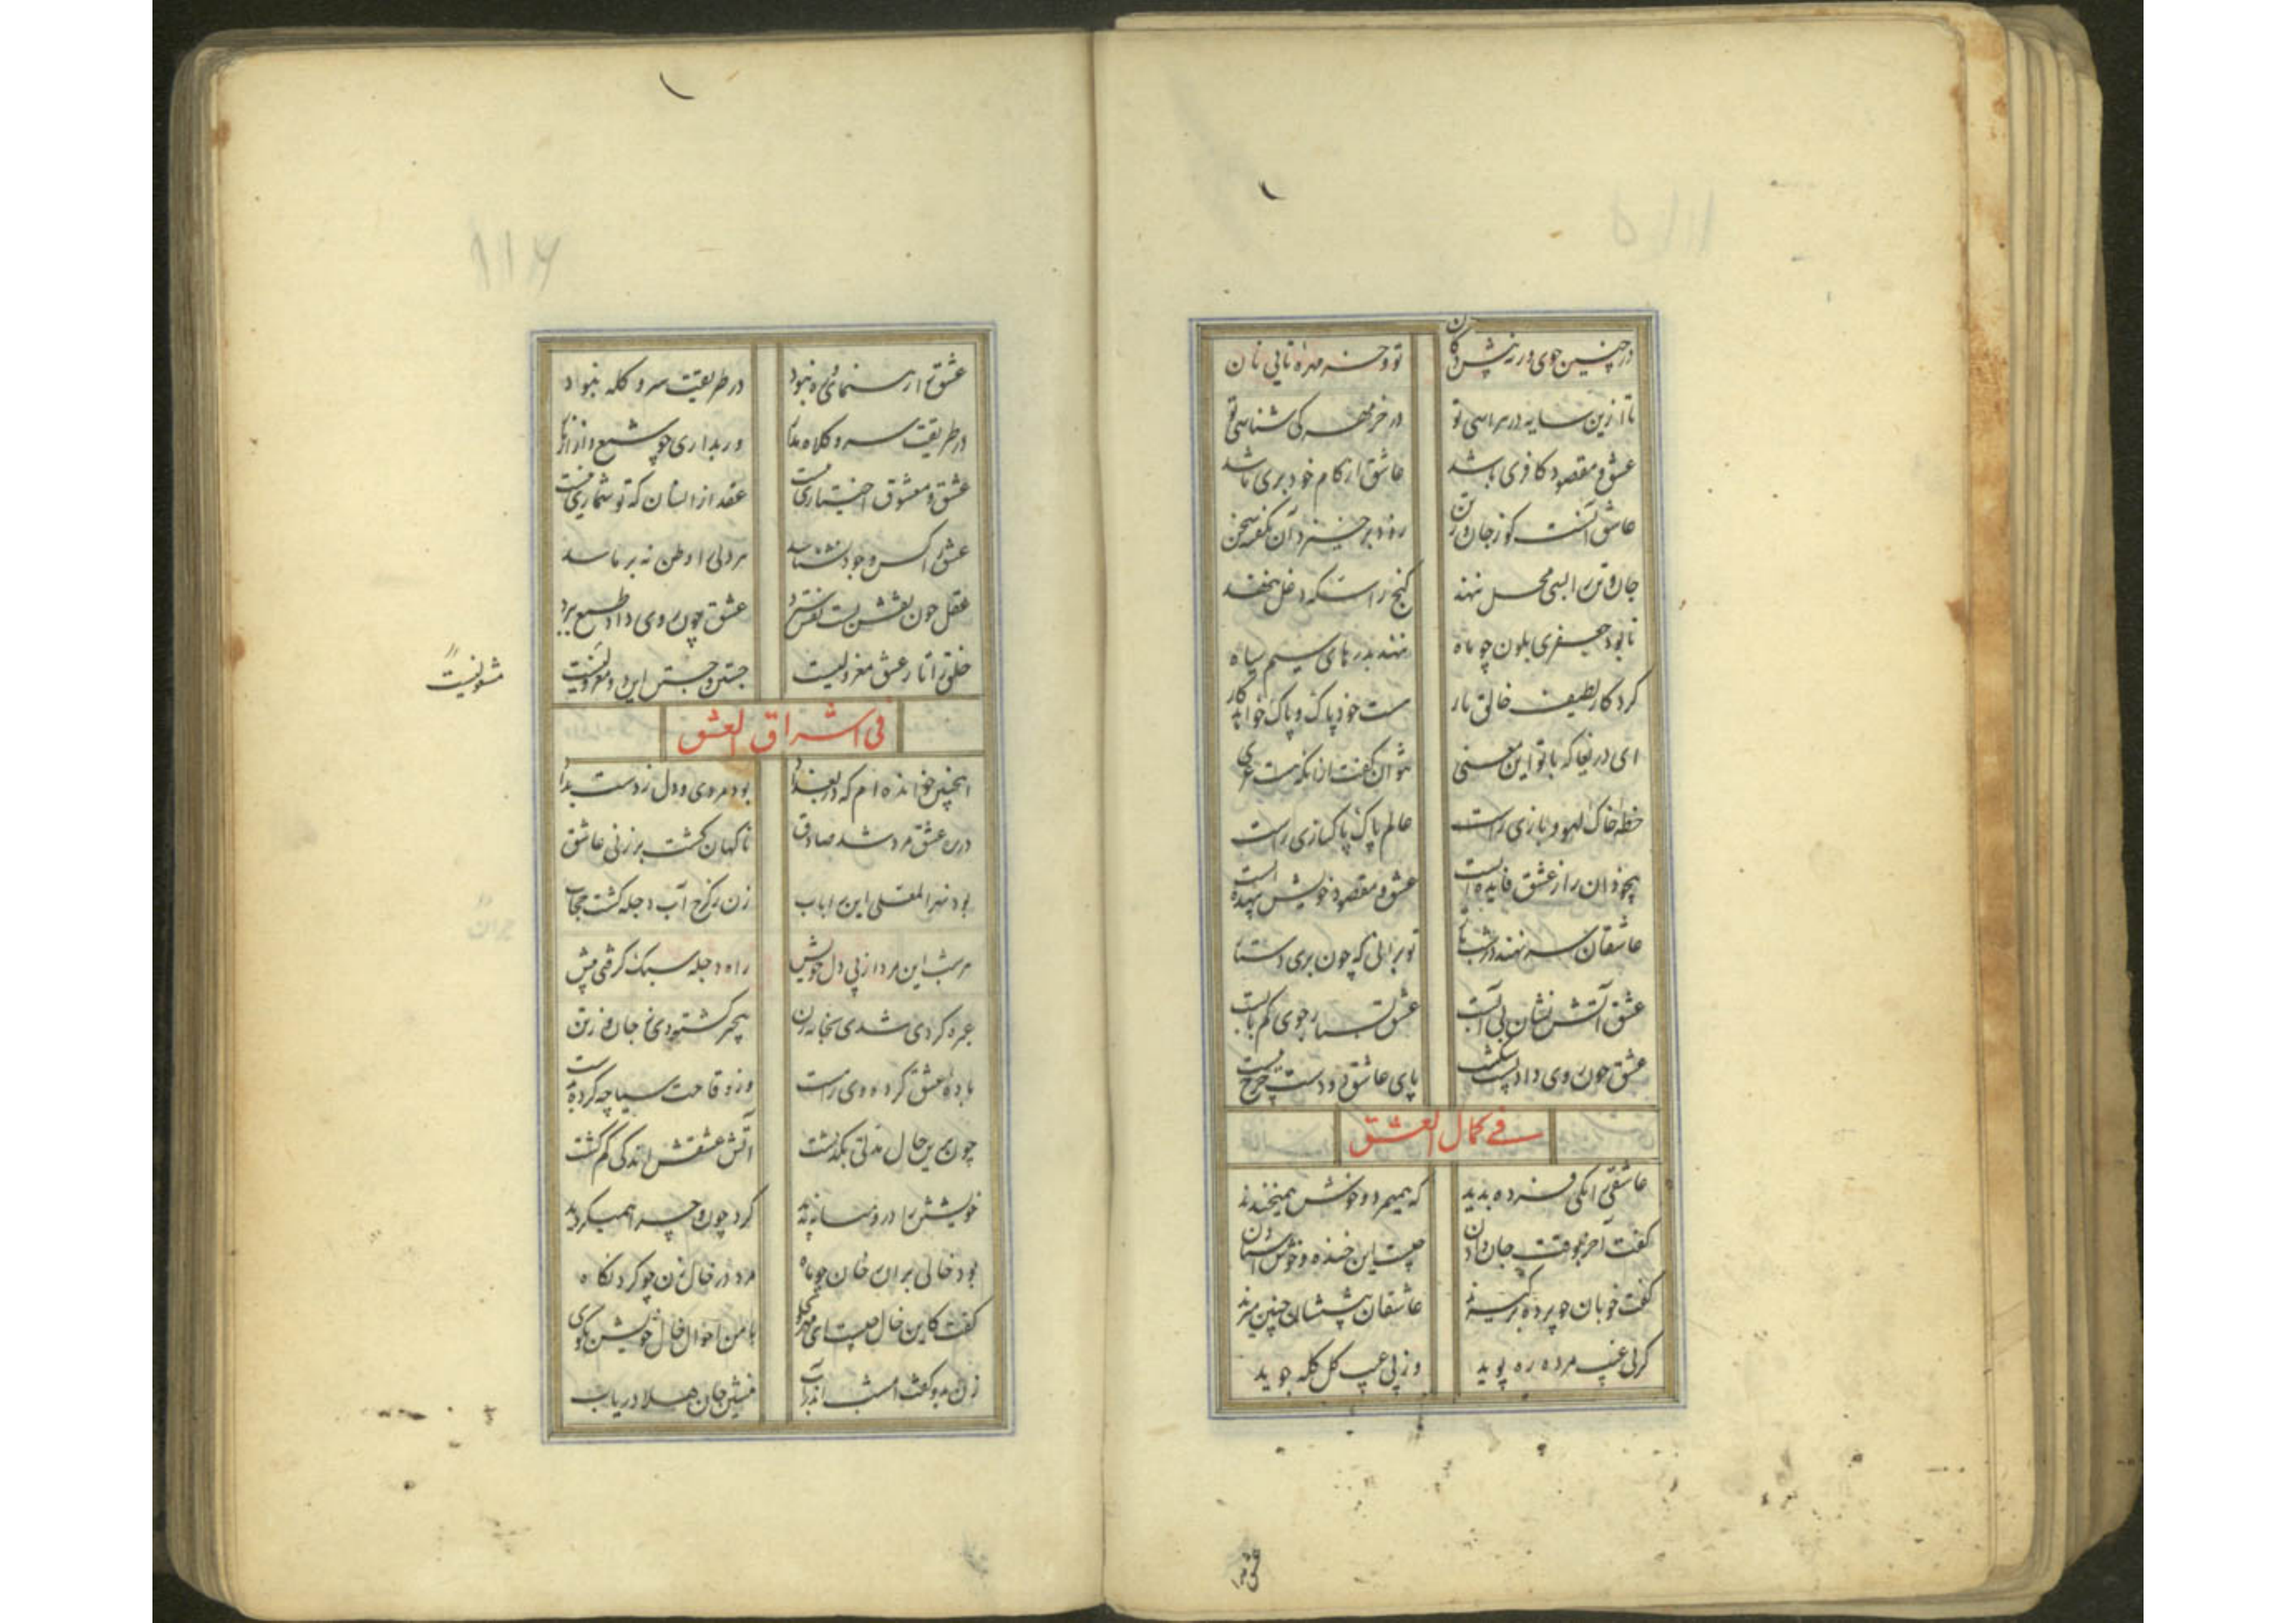 در چنین جوی ورزش دکان تو و خر مهره تا بی نان
تا ازین سایه در هراسی تو در خر مهر کی شناسی تو
عشق و مقصود کافری باشد عاشق از کام خود بری باشد
عاشق آنست کو ز جان و ز تن زود برخیزد آن نگفته سخن
جان و تن را بسی محل ننهد گنج را سکه دغل ننهد
نابود جعفری بلون چو ماه ننهد بدرهای سیم سیاه
کردکار لطیف خالق بار هست خود پاک و پاک خواهد کار
ای دریغا که با تو این معنی نتوان گفت زانکه هست غری
خطهٔ خاک لهو و بازی راست عالم پاک پاکبازی راست
بیخودان را ز عشق فایده است عشق و مقصود خویش بیهده است
عاشقان سر نهند در شب تار تو برانی که چون بری دستار
عشق آتش نشان بی آبست عشق بسیار جوی کم یابست
عشق چون روی داد پست شکست پای عاشق دو دست چرخ ببست
فی کمال العشق
عاشقی را یکی فسرده بدید که همیمرد و خوش همیخندید
کفت آخر بوقت جان دادن چیست این خنده و خوش استادن
کفت خوبان چو پرده برگیرند عاشقان پیششان چنین میرند
کرنی غیب مرده ره پوید وز پی عیب کل کله جوید
عشق را
عشق را رهنمای و ره نبود در طریقیت سر و کله نبود
در طریقت سر و کلاه مدار ور بداری چو شمع دار از نار
عشق و معشوق اختیاری نیست عقد ازانسان که تو شماری نیست
عشق را کس وجود نشناسد هر دلی را وطن نه برناسد
عقل چون نقش بست نفس سترد عشق چون روی داد طبع ببرد
خلق را تا ز عشق معزولیت جستن و جستن این دو معزولیست
مشغولیست
فی اشراق العشق
اینچنین خوانده ام که در بغداد بود مردی و دل ز دست بداد
در ره عشق مرد شد صادق ناکهان کشت بر زنی عاشق
بود نهر المعلی این را باب زن ز کرخ آب دجله کشت حجاب
هر شب این مرد از پی دل خویش راه دجله سبک کرفتی پیش
عبره کردی شدی بخانه زن بیخبر گشته وی ز جان و ز تن
باده عشق کرده وی را مست وز وقاحت سباحه کرده بدست
چون برین حال مدتی بگذشت آتش عشقش اندکی کم کشت
خویشتن را درو میانه بدید کرد چون و چرا همیکردید
بود خالی بران رخان چو ماه مرد در خال زن چو کرد نکاه
کفت کاین خال چیست ای مهروی با من احوال خال خویش بگوی
زن بدو کفت امشب اندر آب منشین جان هلا دریاب